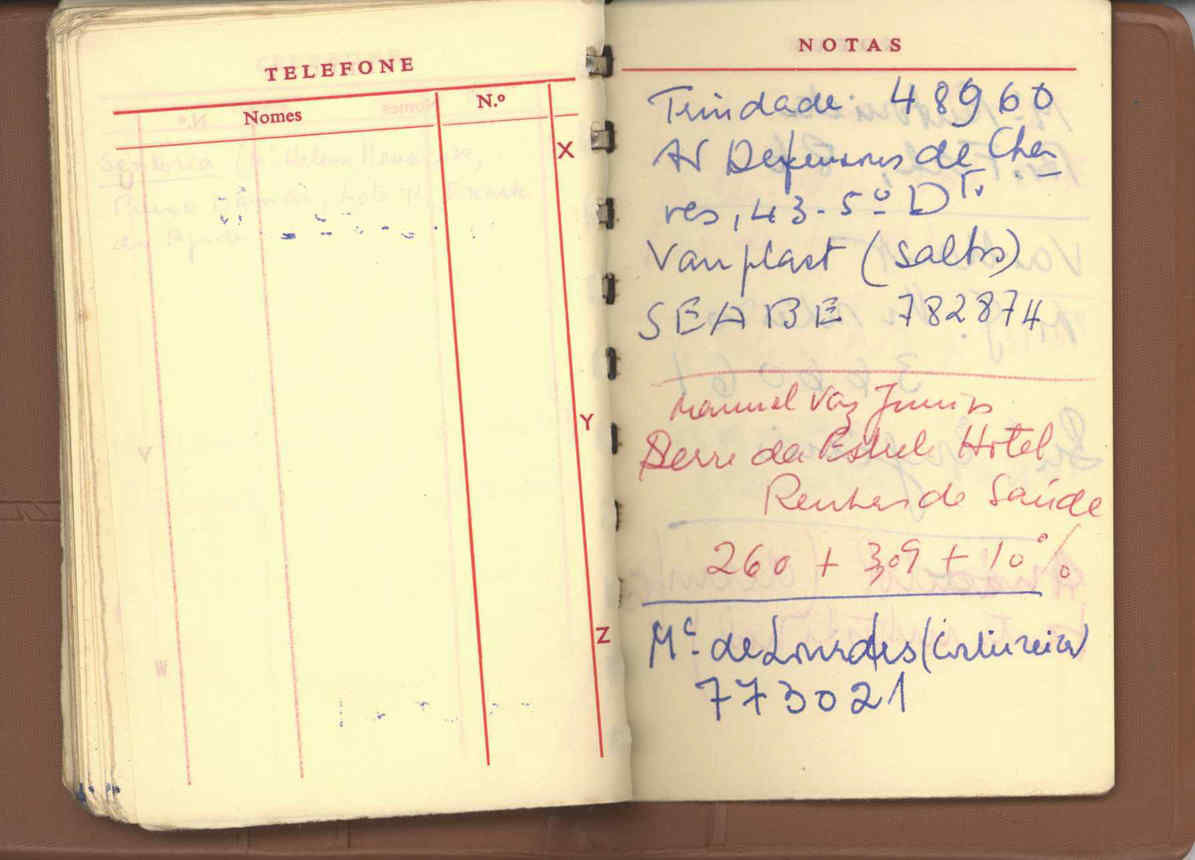 TELEFONE
Nomes
N.º
X
Y
Z
NOTAS
Trindade 48960
Av Defensores de Cha
ves, 43-5º Dto
Vanplast (saltos)
SEABE 782874
Manuel Vaz Junior
Serra da Estrela Hotel
Penhas da Saúde
260 + 309 + 10%
Mª de Lourdes (Costureira)
773021